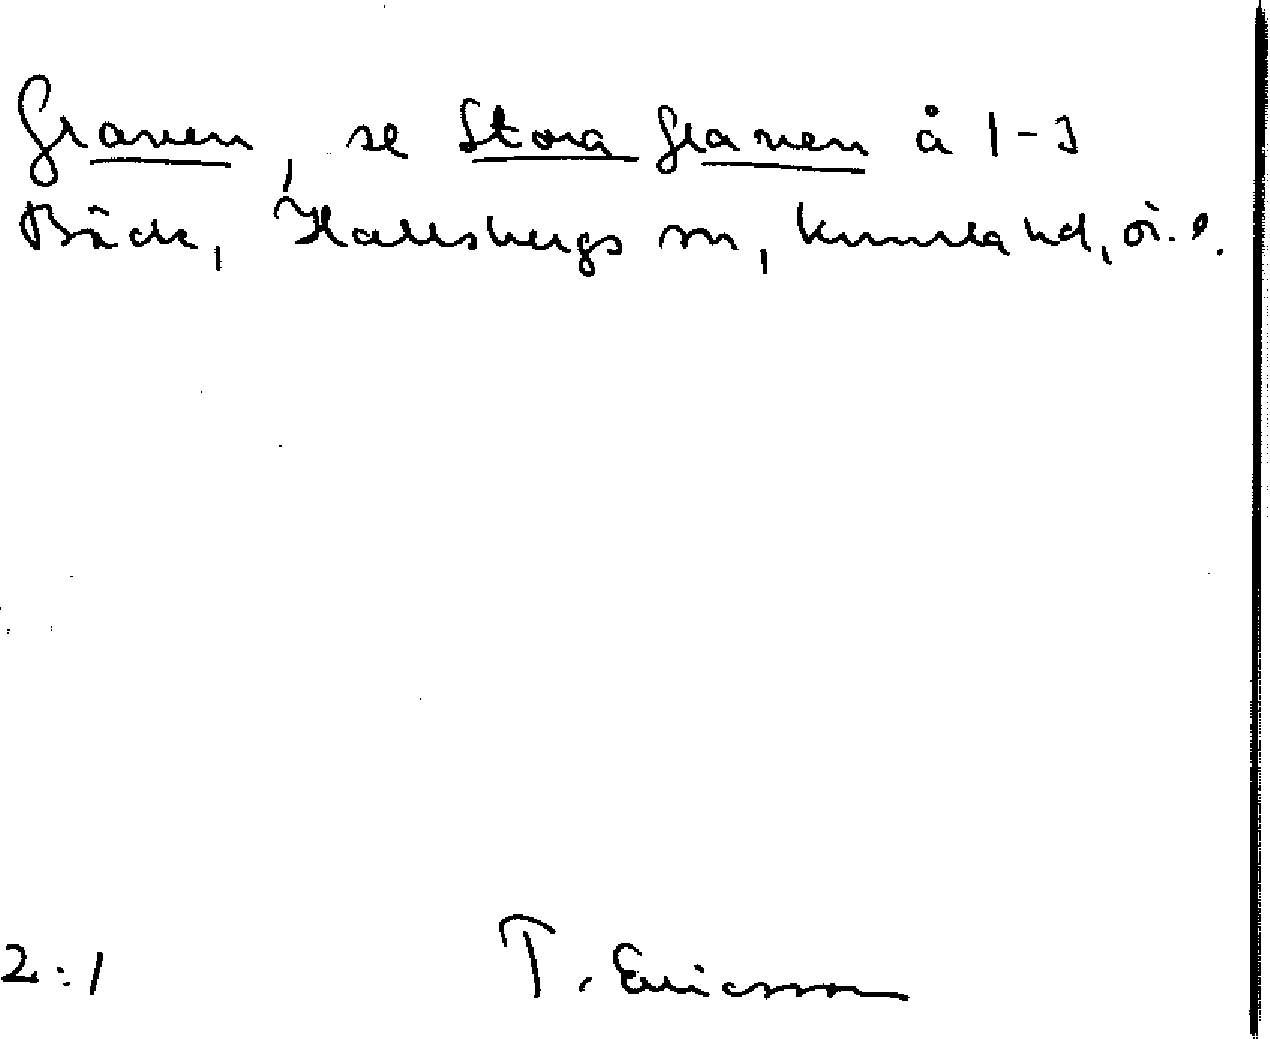 Graven, se Stora Graven å 1-3
Bäck, Hallsbergs sn, Kumla hd, ör. l.
2:1 T. Ericsson